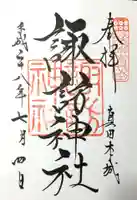 奉拝
真田本城
諏訪神社
平成二十八年七月四日